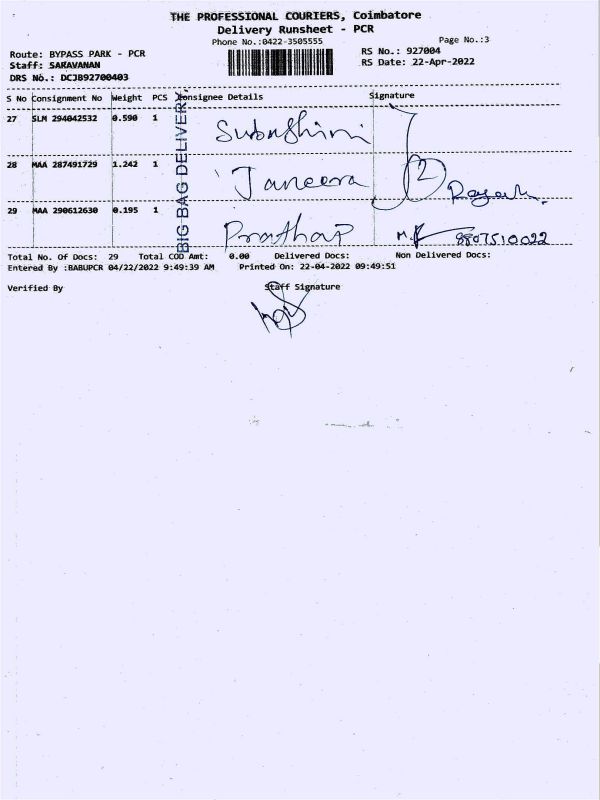 THE PROFESSIONAL COURIERS, Coimbatore
Delivery Runsheet - PCR
Phone No.:0422-3505555
Page No.:3
Route: BYPASS PARK - PCR
RS No.: 927004
Staff: SARAVANAN
RS Date: 22-Apr-2022
DRS No.: DCJB92700403
S No Consignment No Weight PCS Consignee Details Signature
27 SLM 294042532 0.590 1 Subashini
28 MAA 287491729 1.242 1 Janeera 2
29 MAA 290612630 0.195 1 Prathap 8807510022
BIG BAG DELIVERY
Total No. Of Docs: 29 Total COD Amt: 0.00 Delivered Docs: Non Delivered Docs:
Entered By :BABUPCR 04/22/2022 9:49:39 AM Printed On: 22-04-2022 09:49:51
Verified By Staff Signature